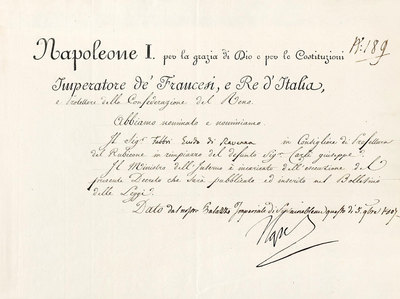 Napoleone I. per la grazia di Dio e per le Costituzioni
N.° 189
Imperatore de' Francesi, e Re d'Italia,
e Protettore della Confederazione del Reno.
Abbiamo nominato e nominiamo.
Il Sig.r Fabbri Guido di Ravenna in Consigliere di Prefettura
del Rubicone in rimpiazzo del defunto Sig.r Carli giuseppe.
Il Ministro dell'Interno è incaricato dell'esecuzione del
presente Decreto che sarà pubblicato ed inserito nel Bollettino
delle Leggi.
Dato dal nostro Palazzo Imperiale di questo dì